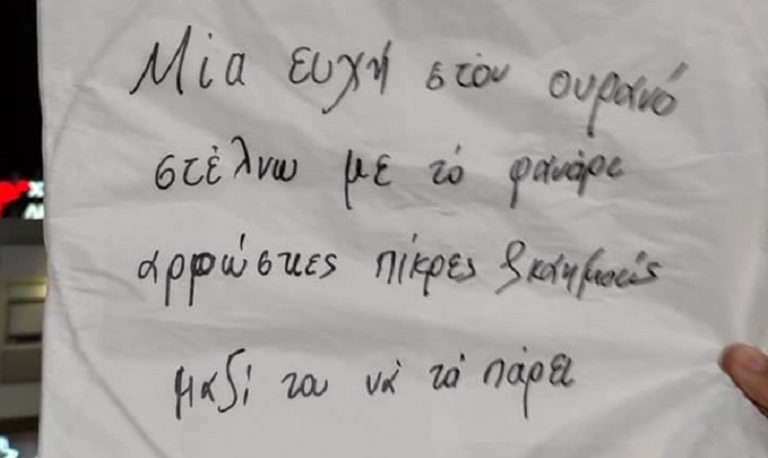 Μία ευχή στον ουρανό
στέλνω με τό φανάρι
αρρώστιες πίκρες ξ καημούς
μαζί του νά τά πάρει